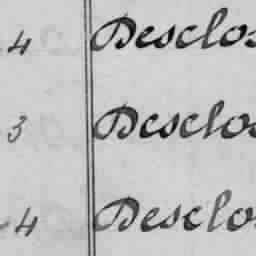 4 Desclos
3 Desclos
4 Desclos